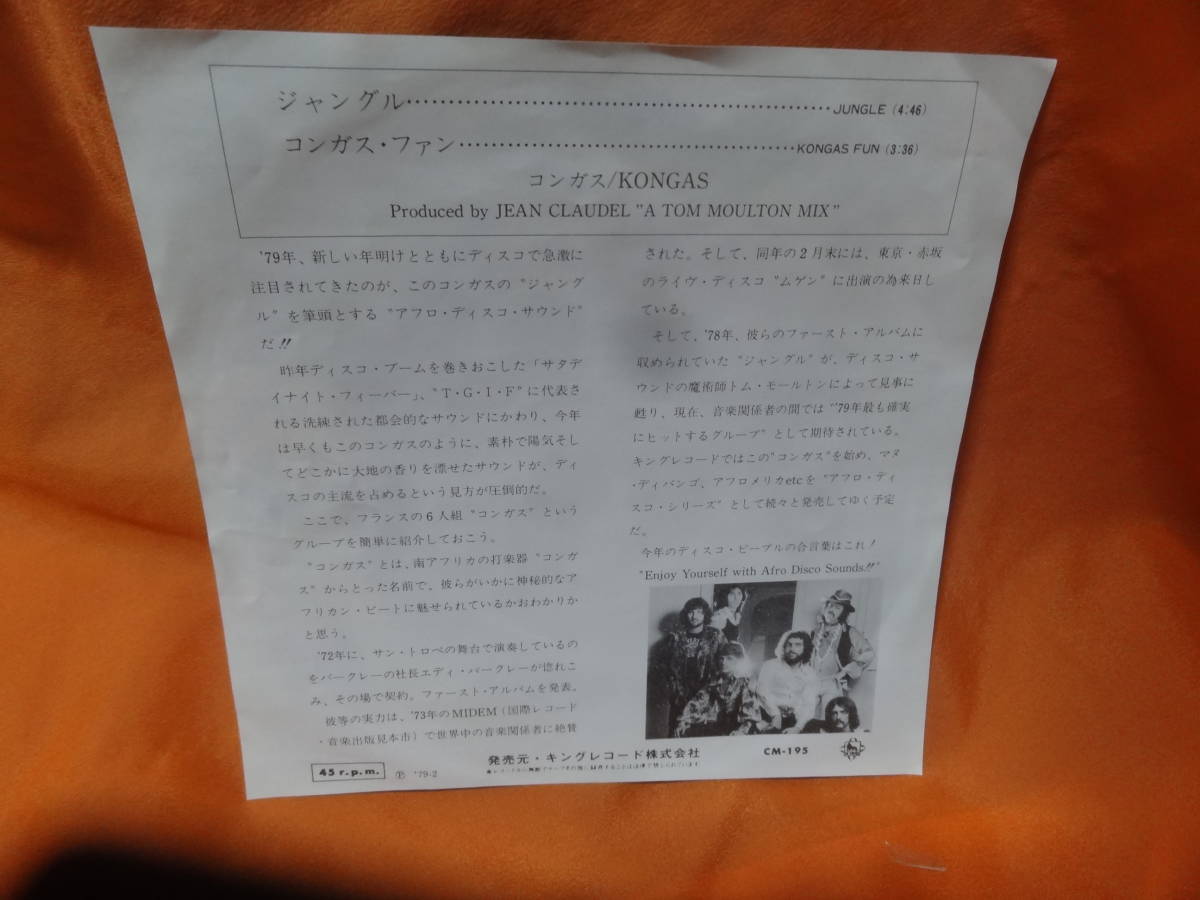 ジャングル……………………………………………JUNGLE (4:46)
コンガス・ファン……………………………………KONGAS FUN (3:36)
コンガス/KONGAS
Produced by JEAN CLAUDEL "A TOM MOULTON MIX"
'79年、新しい年明けとともにディスコで急激に
注目されてきたのが、このコンガスの“ジャング
ル”を筆頭とする“アフロ・ディスコ・サウンド”
だ!!
昨年ディスコ・ブームを巻きおこした「サタデ
イナイト・フィーバー」、“T・G・I・F”に代表さ
れる洗練された都会的なサウンドにかわり、今年
は早くもこのコンガスのように、素朴で陽気そし
てどこかに大地の香りを漂せたサウンドが、ディ
スコの主流を占めるという見方が圧倒的だ。
ここで、フランスの6人組“コンガス”という
グループを簡単に紹介しておこう。
“コンガス”とは、南アフリカの打楽器“コンガ
ス”からとった名前で、彼らがいかに神秘的なア
フリカン・ビートに魅せられているかおわかりか
と思う。
'72年に、サン・トロペの舞台で演奏しているの
をバークレーの社長エディ・バークレーが惚れこ
み、その場で契約。ファースト・アルバムを発表。
彼等の実力は、'73年のMIDEM(国際レコード
・音楽出版見本市)で世界中の音楽関係者に絶賛
された。そして、同年の2月末には、東京・赤坂
のライヴ・ディスコ“ムゲン”に出演の為来日し
ている。
そして、'78年、彼らのファースト・アルバムに
収められていた“ジャングル”が、ディスコ・サ
ウンドの魔術師トム・モールトンによって見事に
甦り、現在、音楽関係者の間では“'79年最も確実
にヒットするグループ”として期待されている。
キングレコードではこの“コンガス”を始め、マヌ
・ディバンゴ、アフロメリカetcを“アフロ・ディ
スコ・シリーズ”として続々と発売してゆく予定
だ。
今年のディスコ・ピープルの合言葉はこれ!
"Enjoy Yourself with Afro Disco Sounds!!"
45 r.p.m.
Ⓟ '79-2
発売元・キングレコード株式会社
CM-195